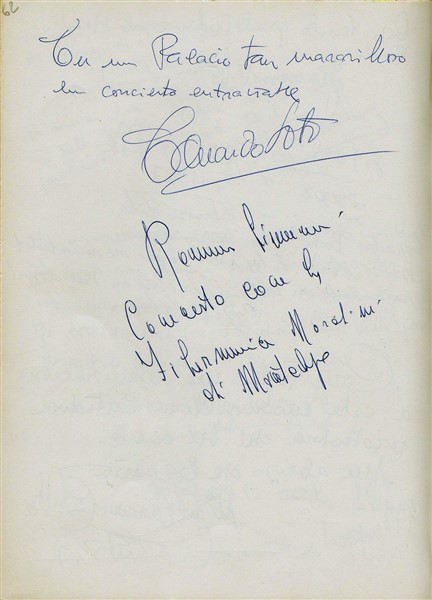 62
En un Palacio tan maravilloso
un concierto entrañable
Eduardo Soto
Romano
Concerto con la
Filarmonica
di